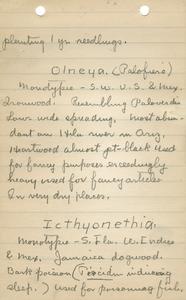 planting 1 yr. seedlings.
Olneya. (Palofiero)
Monotype - S.W. U.S. & Mex.
Ironwood. Resembling Paloverde
Low wide spreading. Most abun-
dant on Hila river in Ariz.
Heartwood almost jet-black used
for fancy purposes exceedingly
heavy used for fancy articles
In very dry places.
Icthyonethia.
Monotype - S. Fla. W. Indies
& Mex. Jamaica dogwood.
Bark poison (Piscidin inducing
sleep.) Used for poisoning fish,